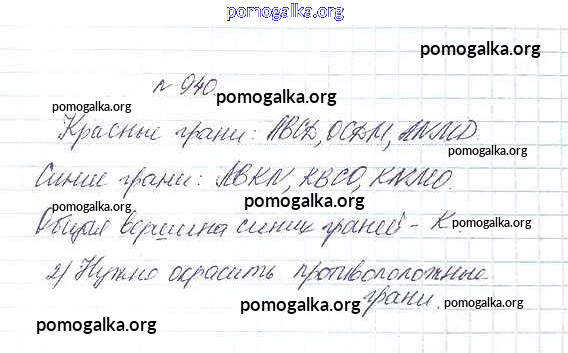 pomogalka.org
pomogalka.org
№ 940.
pomogalka.org
pomogalka.org
Красные грани: ABCD, OCDM, ANMD.
pomogalka.org
Синие грани: ABKN, KBCO, KNMO.
pomogalka.org
pomogalka.org
Общая вершина синих граней - K.
pomogalka.org
2) Нужно окрасить противоположные
грани.
pomogalka.org
pomogalka.org
pomogalka.org